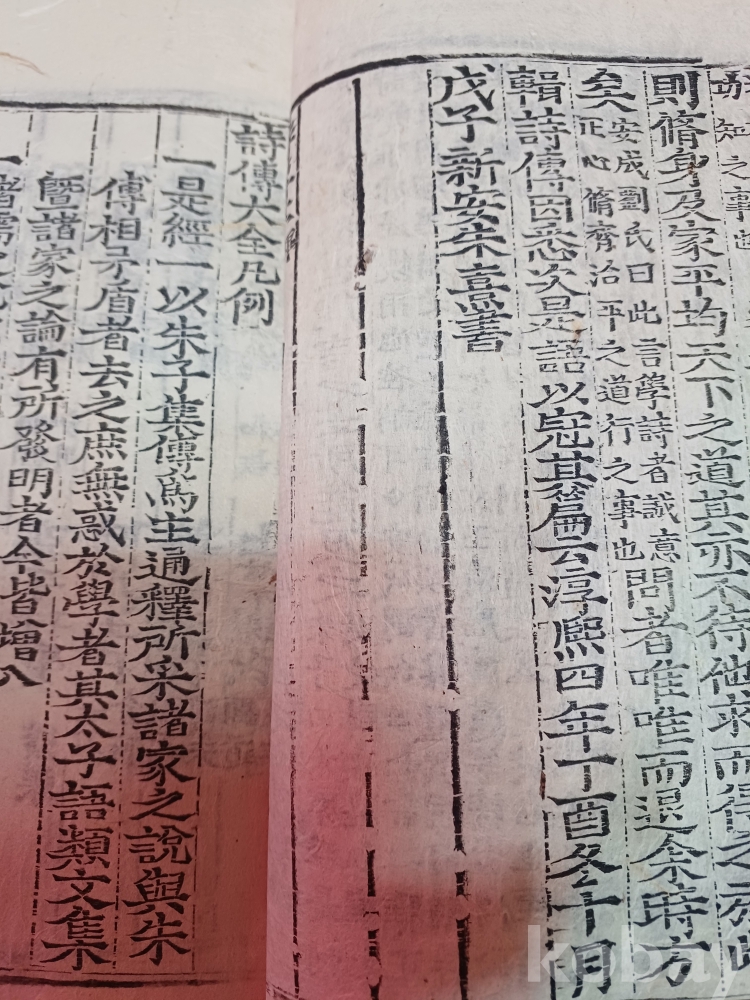 知之事也
則脩身及家平均天下之道其亦不待他求而得之於此
矣安成劉氏曰此言學詩者誠意
正心脩齊治平之道行之事也
問者唯唯而退余時方
輯詩傳因悉次是語以冠其篇云淳熙四年丁酉冬十月
戊子新安朱熹書
詩傳大全凡例
一是經一以朱子集傳爲主通釋所采諸家之說與朱
傳相矛盾者去之庶無惑於學者其太子語類文集
暨諸家之論有所發明者今皆增入
一諸儒
kobay